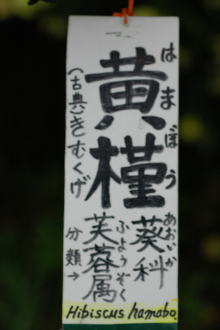 黄槿
はまぼう
(古典)きむくげ
葵科
あおいか
芙蓉属
ふようぞく
分類→
Hibiscus hamabo